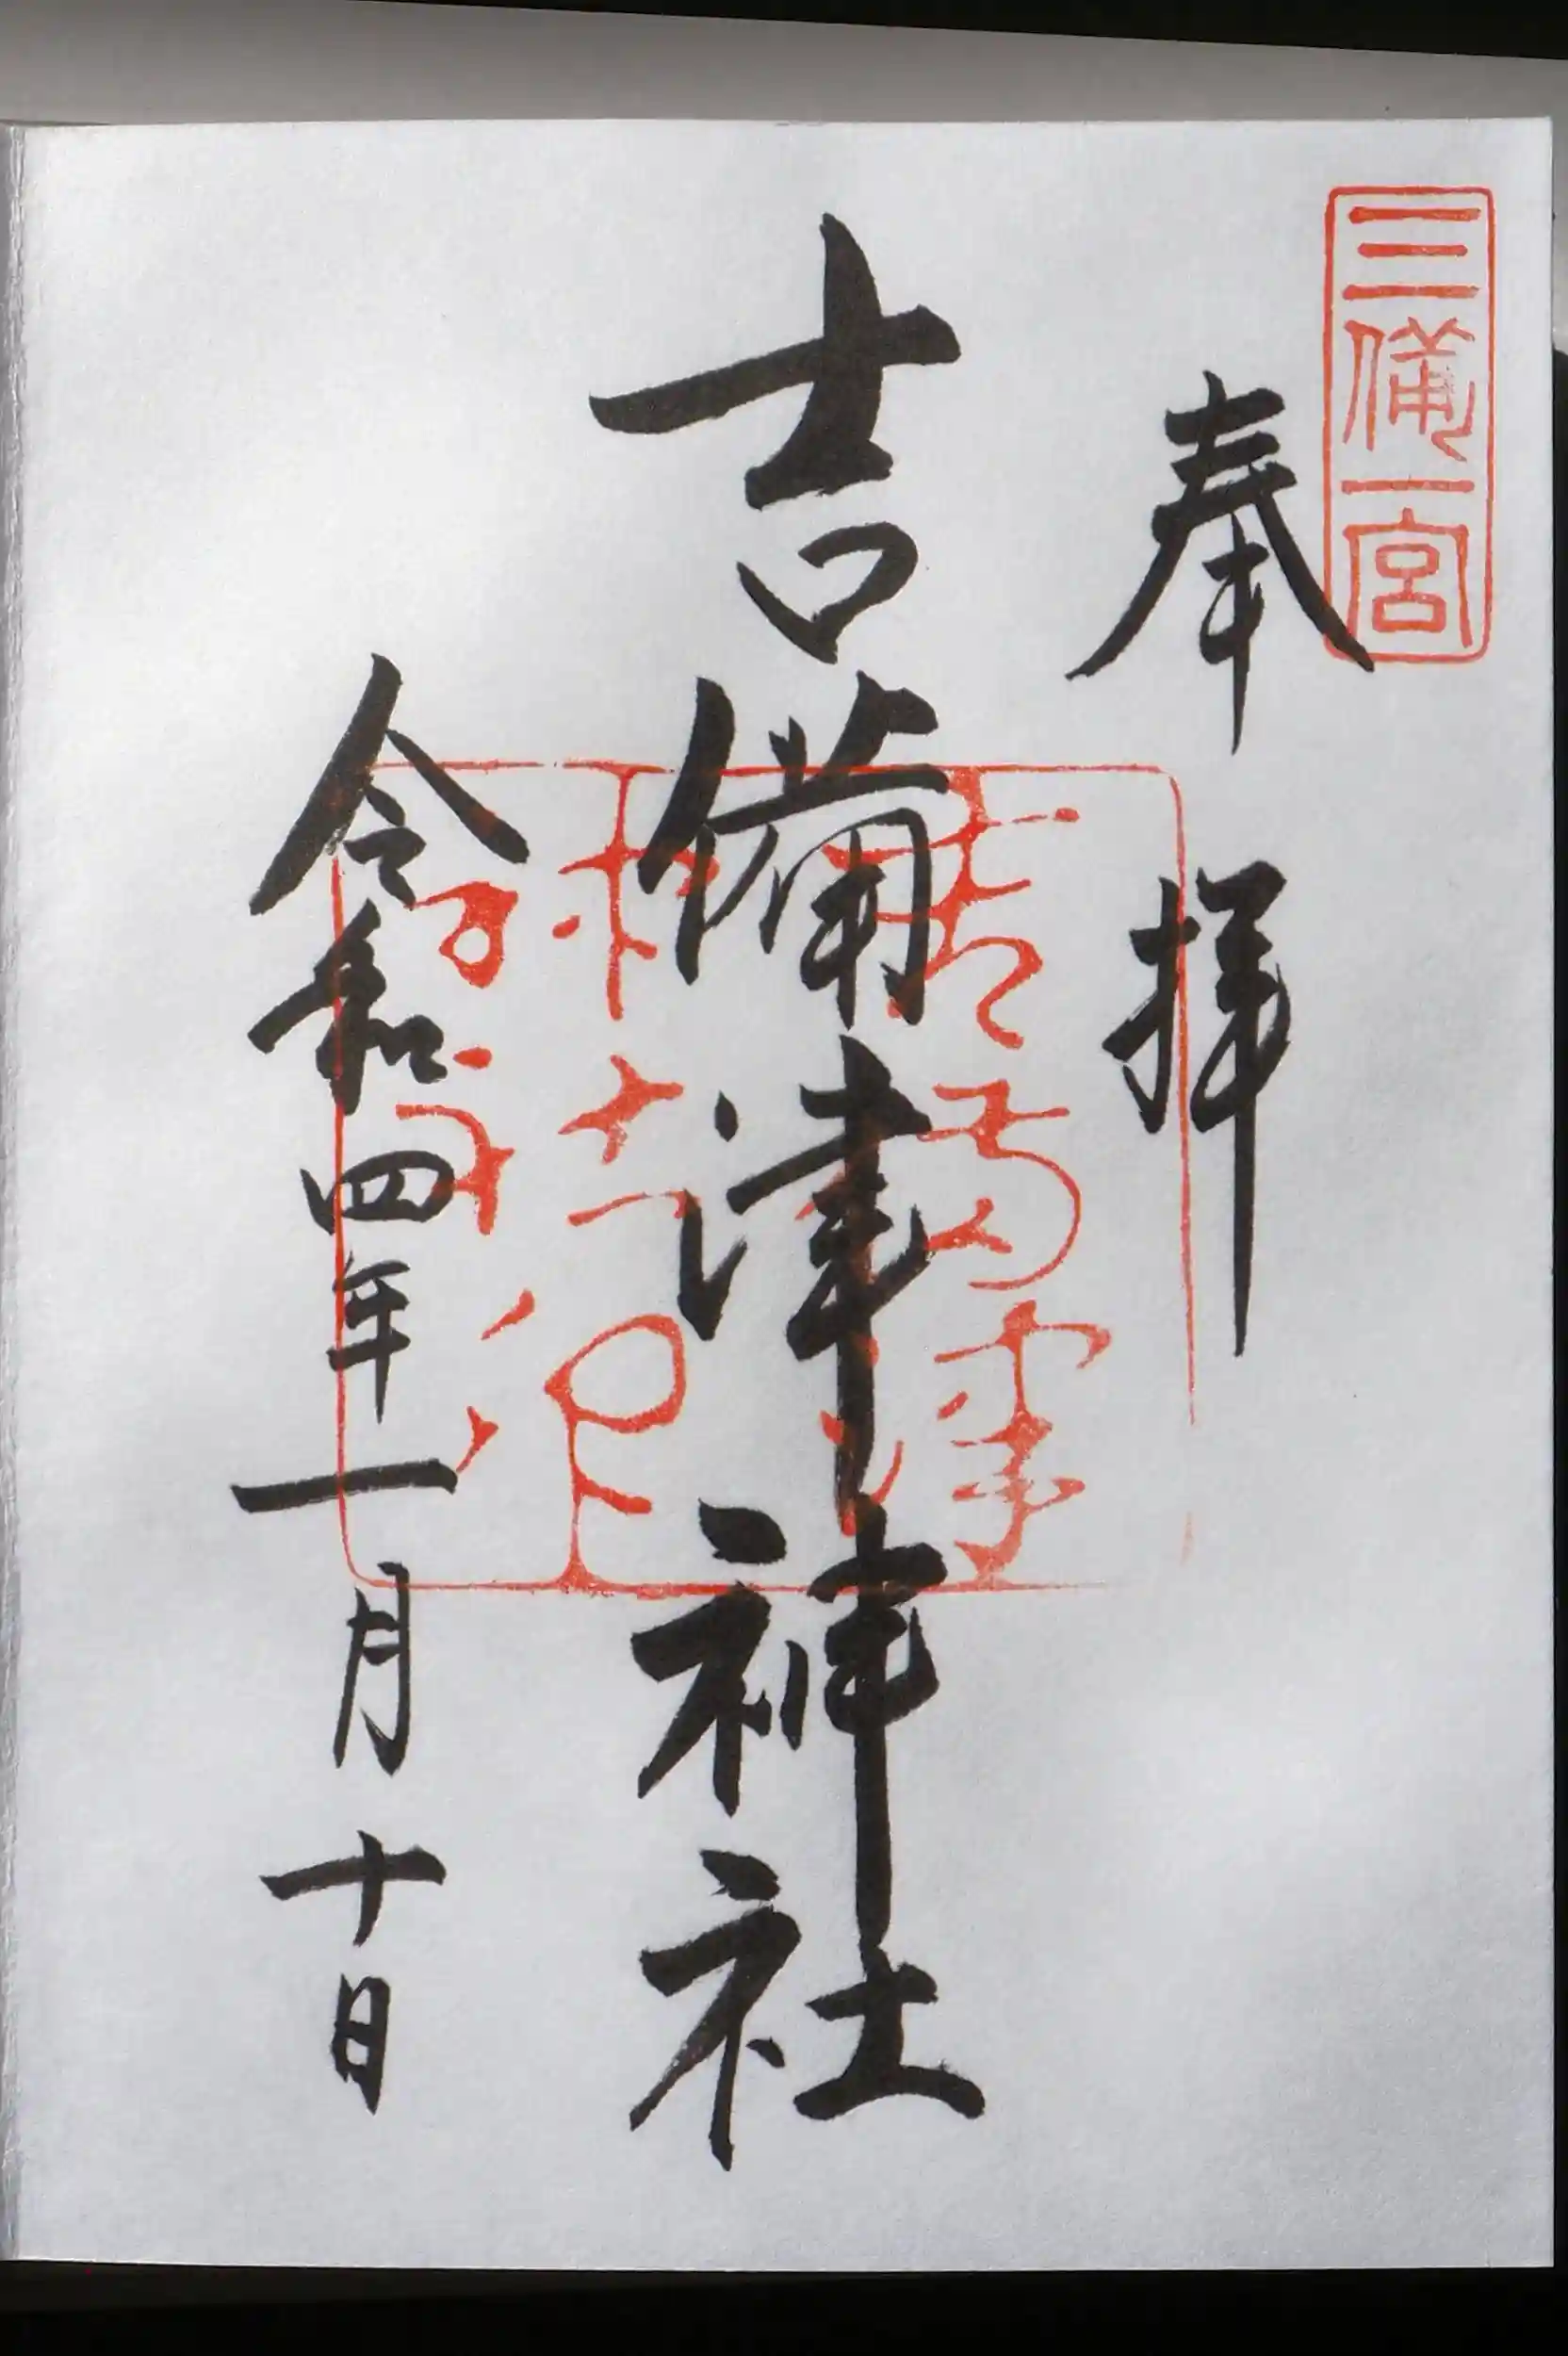 三備一宮
奉拝
吉備津神社
令和四年一月十日